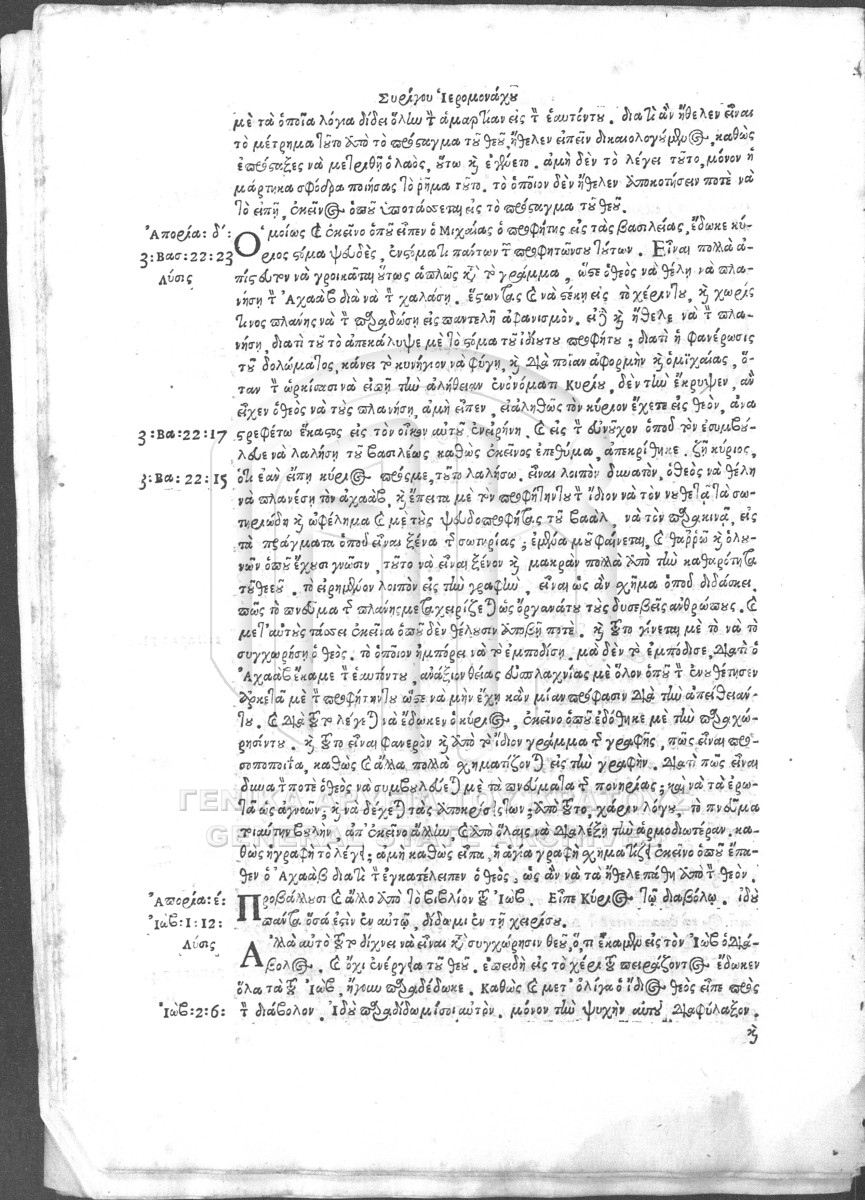 Συρίγου Ἱερομονάχου
μὲ τὰ ὁποῖα λόγια δίδει ὅλην τὴν ἁμαρτίαν εἰς τὸν ἑαυτόντου. διατὶ ἂν ἤθελεν εἶναι
τὸ μέτρημα τοῦτο ἀπὸ τὸ πρόσταγμα τοῦ θεοῦ, ἤθελεν εἰπεῖν δικαιολογούμενος, καθὼς
ἐπρόσταξες νὰ μετρηθῇ ὁ λαὸς, οὕτω καὶ ἐγένετο. ἀμὴ δὲν τὸ λέγει τοῦτο, μόνον ἡ
μάρτηκα σφόδρα ποιήσας τὸ ῥῆμα τοῦτο. τὸ ὁποῖον δὲν ἤθελεν ἀποκοτήσειν ποτὲ νὰ
τὸ εἰπῇ, ἐκεῖνος ὁποῦ ὑποτάσσεται εἰς τὸ πρόσταγμα τοῦ θεοῦ.
Ἀπορία: δ´:
Ὁμοίως καὶ ἐκεῖνο ὁποῦ εἶπεν ὁ Μιχαίας ὁ προφήτης εἰς τὰς βασιλείας, ἔδωκε κύ-
3: Βασ: 22: 23
ριος στόμα ψευδὲς, ἐν στόματι πάντων τῶν προφητῶν σου τούτων. Εἶναι πολλὰ ἀ-
Λύσις
πίστευτον νὰ γροικᾶται οὕτως ἁπλῶς κατὰ τὸ γράμμα, ὥστε ὁ θεὸς νὰ θέλῃ νὰ πλα-
νήσῃ τὸν Ἀχαὰβ διὰ νὰ τὸν χαλάσῃ. ἔστωντας καὶ νὰ στέκῃ εἰς τὸ χέριντου, καὶ χωρὶς
τινος πλάνης νὰ τὸν παραδώσῃ εἰς παντελῆ ἀφανισμόν. εἰ δὲ καὶ ἤθελε νὰ τὸν πλα-
νήσῃ, διατὶ τοῦτο ἀπεκάλυψε μὲ τὸ στόμα τοῦ ἰδίου του προφήτου; διατὶ ἡ φανέρωσις
τοῦ δολώματος, κάνει τὸ κυνήγιον νὰ φύγῃ, καὶ διὰ ποίαν ἀφορμὴν καὶ ὁ μιχαίας, ὅ-
ταν τὸν ὥρκισασι νὰ εἰπῇ τὴν ἀλήθειαν ἐν ὀνόματι Κυρίου, δὲν τὴν ἔκρυψεν, ἂν
εἶχεν ὁ θεὸς νὰ τοὺς πλανήσῃ, ἀμὴ εἶπεν, εἰ ἀληθῶς τὸν κύριον ἔχετε εἰς θεὸν, ἀνα
3: Βα: 22: 17
στρεφέτω ἕκαστος εἰς τὸν οἶκον αὐτοῦ ἐν εἰρήνῃ. καὶ εἰς τὸν εὐνοῦχον ὁποῦ τὸν ἐσυμβού-
λευε νὰ λαλήσῃ τοῦ βασιλέως καθὼς ἐκεῖνος ἐπεθύμα, ἀπεκρίθηκε. ζῇ κύριος,
3: Βα: 22: 15
ὅτι ἐὰν εἴπῃ κύριος πρός με, τοῦτο λαλήσω. εἶναι λοιπὸν δυνατὸν, ὁ θεὸς νὰ θέλῃ
νὰ πλανέσῃ τὸν ἀχαὰβ, καὶ ἔπειτα μὲ τὸν προφήτηντου τὸν ἴδιον νὰ τὸν νουθετᾷ τὰ σω-
τηριώδη καὶ ὠφέλημα καὶ μὲ τοὺς ψευδοπροφήτας τοῦ βαὰλ, νὰ τὸν παρακινᾷ, εἰς
τὰ πράγματα ὁποῦ εἶναι ξένα τῆς σωτηρίας; ἐμένα μοῦ φαίνεται, καὶ θαρρῶ καὶ ὁλου-
νῶν ὁποῦ ἔχουσι γνῶσιν, τοῦτο νὰ εἶναι ξένον καὶ μακρὰν πολλὰ ἀπὸ τὴν καθαρότητα
τοῦ θεοῦ. τὸ εἰρημένον λοιπὸν εἰς τὴν γραφὴν, εἶναι ὡς ἂν σχῆμα ὁποῦ διδάσκει,
πῶς τὸ πνεῦμα τῆς πλάνης μεταχειρίζεται ὡς ὄργανάτου τοὺς δυσεβεῖς ἀνθρώπους. καὶ
μετ' αὐτοὺς τάσσει ἐκεῖνα ὁποῦ δὲν θέλουσιν ἀποβῇ ποτέ. καὶ τοῦτο γίνεται μὲ τὸ νὰ τὸ
συγχωρήσῃ ὁ θεὸς. τὸ ὁποῖον ἠμπόρει νὰ τὸ ἐμποδίσῃ. μὰ δὲν τὸ ἐμπόδισε, διατὶ ὁ
Ἀχαὰβ ἔκαμε τὸν ἑαυτόντου, ἀνάξιον θείας εὐσπλαχνίας μὲ ὅλον ὁποῦ τὸν ἐνουθέτησεν
ἀρκετὰ μὲ τὸν προφήτηντου ὥστε νὰ μὴν ἔχῃ κἂν μίαν πρόφασιν διὰ τὴν ἀπείθειάν-
του. καὶ διὰ τοῦτο λέγεται νὰ ἔδωκεν ὁ κύριος, ἐκεῖνο ὁποῦ ἐδόθηκε μὲ τὴν παραχώ-
ρησίντου. καὶ τοῦτο εἶναι φανερὸν καὶ ἀπὸ τὸ ἴδιον γράμμα τῆς γραφῆς, πῶς εἶναι προ-
σοποποιΐα, καθὼς καὶ ἄλλα πολλὰ σχηματίζονται εἰς τὴν γραφήν. διατὶ πῶς εἶναι
δυνατὸν ποτὲ ὁ θεὸς νὰ συμβουλεύεται μὲ τὰ πνεύματα τῆς πονηρίας; καὶ νὰ τὰ ἐρω-
τᾷ ὡς ἀγνοῶν; καὶ νὰ δέχεται τὰς ἀποκρίσεις των; ἀπὸ τοῦτο, χάριν λόγου, τὸ πνεῦμα
τοιαύτην βουλὴν, ἀπ' ἐκεῖνο ἄλλην, καὶ ἀπὸ ὅλαις νὰ διαλέξῃ τὴν ἁρμοδιωτέραν, κα-
θὼς ἡ γραφὴ τὸ λέγει; ἀμὴ καθὼς εἶπα, ἡ ἁγία γραφὴ σχηματίζει ἐκεῖνο ὁποῦ ἔπα-
θεν ὁ Ἀχαὰβ διατὶ τὸν ἐγκατέλειπεν ὁ θεὸς, ὡς ἂν νὰ τὰ ἤθελε πάθῃ ἀπὸ τὸν θεόν.
Ἀπορία: έ:
Προβάλλουσι καὶ ἄλλο ἀπὸ τὸ βιβλίον τοῦ Ἰώβ. Εἶπε Κύριος τῷ διαβόλῳ. ἰδοὺ
Ἰὼβ: 1: 12:
πάντα ὅσα ἐστὶν ἐν αὐτῷ, δίδωμι ἐν τῇ χειρί σου.
Λύσις
Ἀλλὰ αὐτὸ τοῦτο δίχνει νὰ εἶναι κατὰ συγχώρησιν θεοῦ, ὅ,τι ἔκαμεν εἰς τὸν Ἰὼβ ὁ διά-
βολος. καὶ ὄχι ἐνέργεια τοῦ θεοῦ. ἐπειδὴ εἰς τὸ χέρι τοῦ πειράζοντος ἔδωκεν
ὅλα τὰ τοῦ Ἰὼβ, ἤγουν παραδέδωκε. καθὼς καὶ μετ' ὀλίγα ὁ ἴδιος θεὸς εἶπε πρὸς
Ἰὼβ: 2: 6:
τὸν διάβολον. Ἰδοὺ παραδίδωμί σοι αὐτόν. μόνον τὴν ψυχὴν αὐτοῦ διαφύλαξον.
καὶ
ΓΕΝΙΚΑ ΑΡΧΕΙΑ
GENERAL STATE ARCHIVES